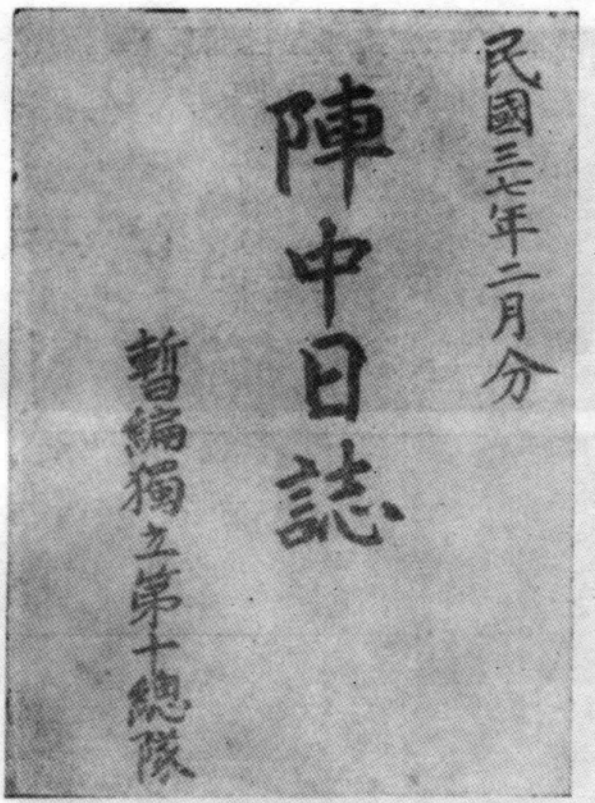 民國三七年二月分
陣中日誌
暫編獨立第十總隊